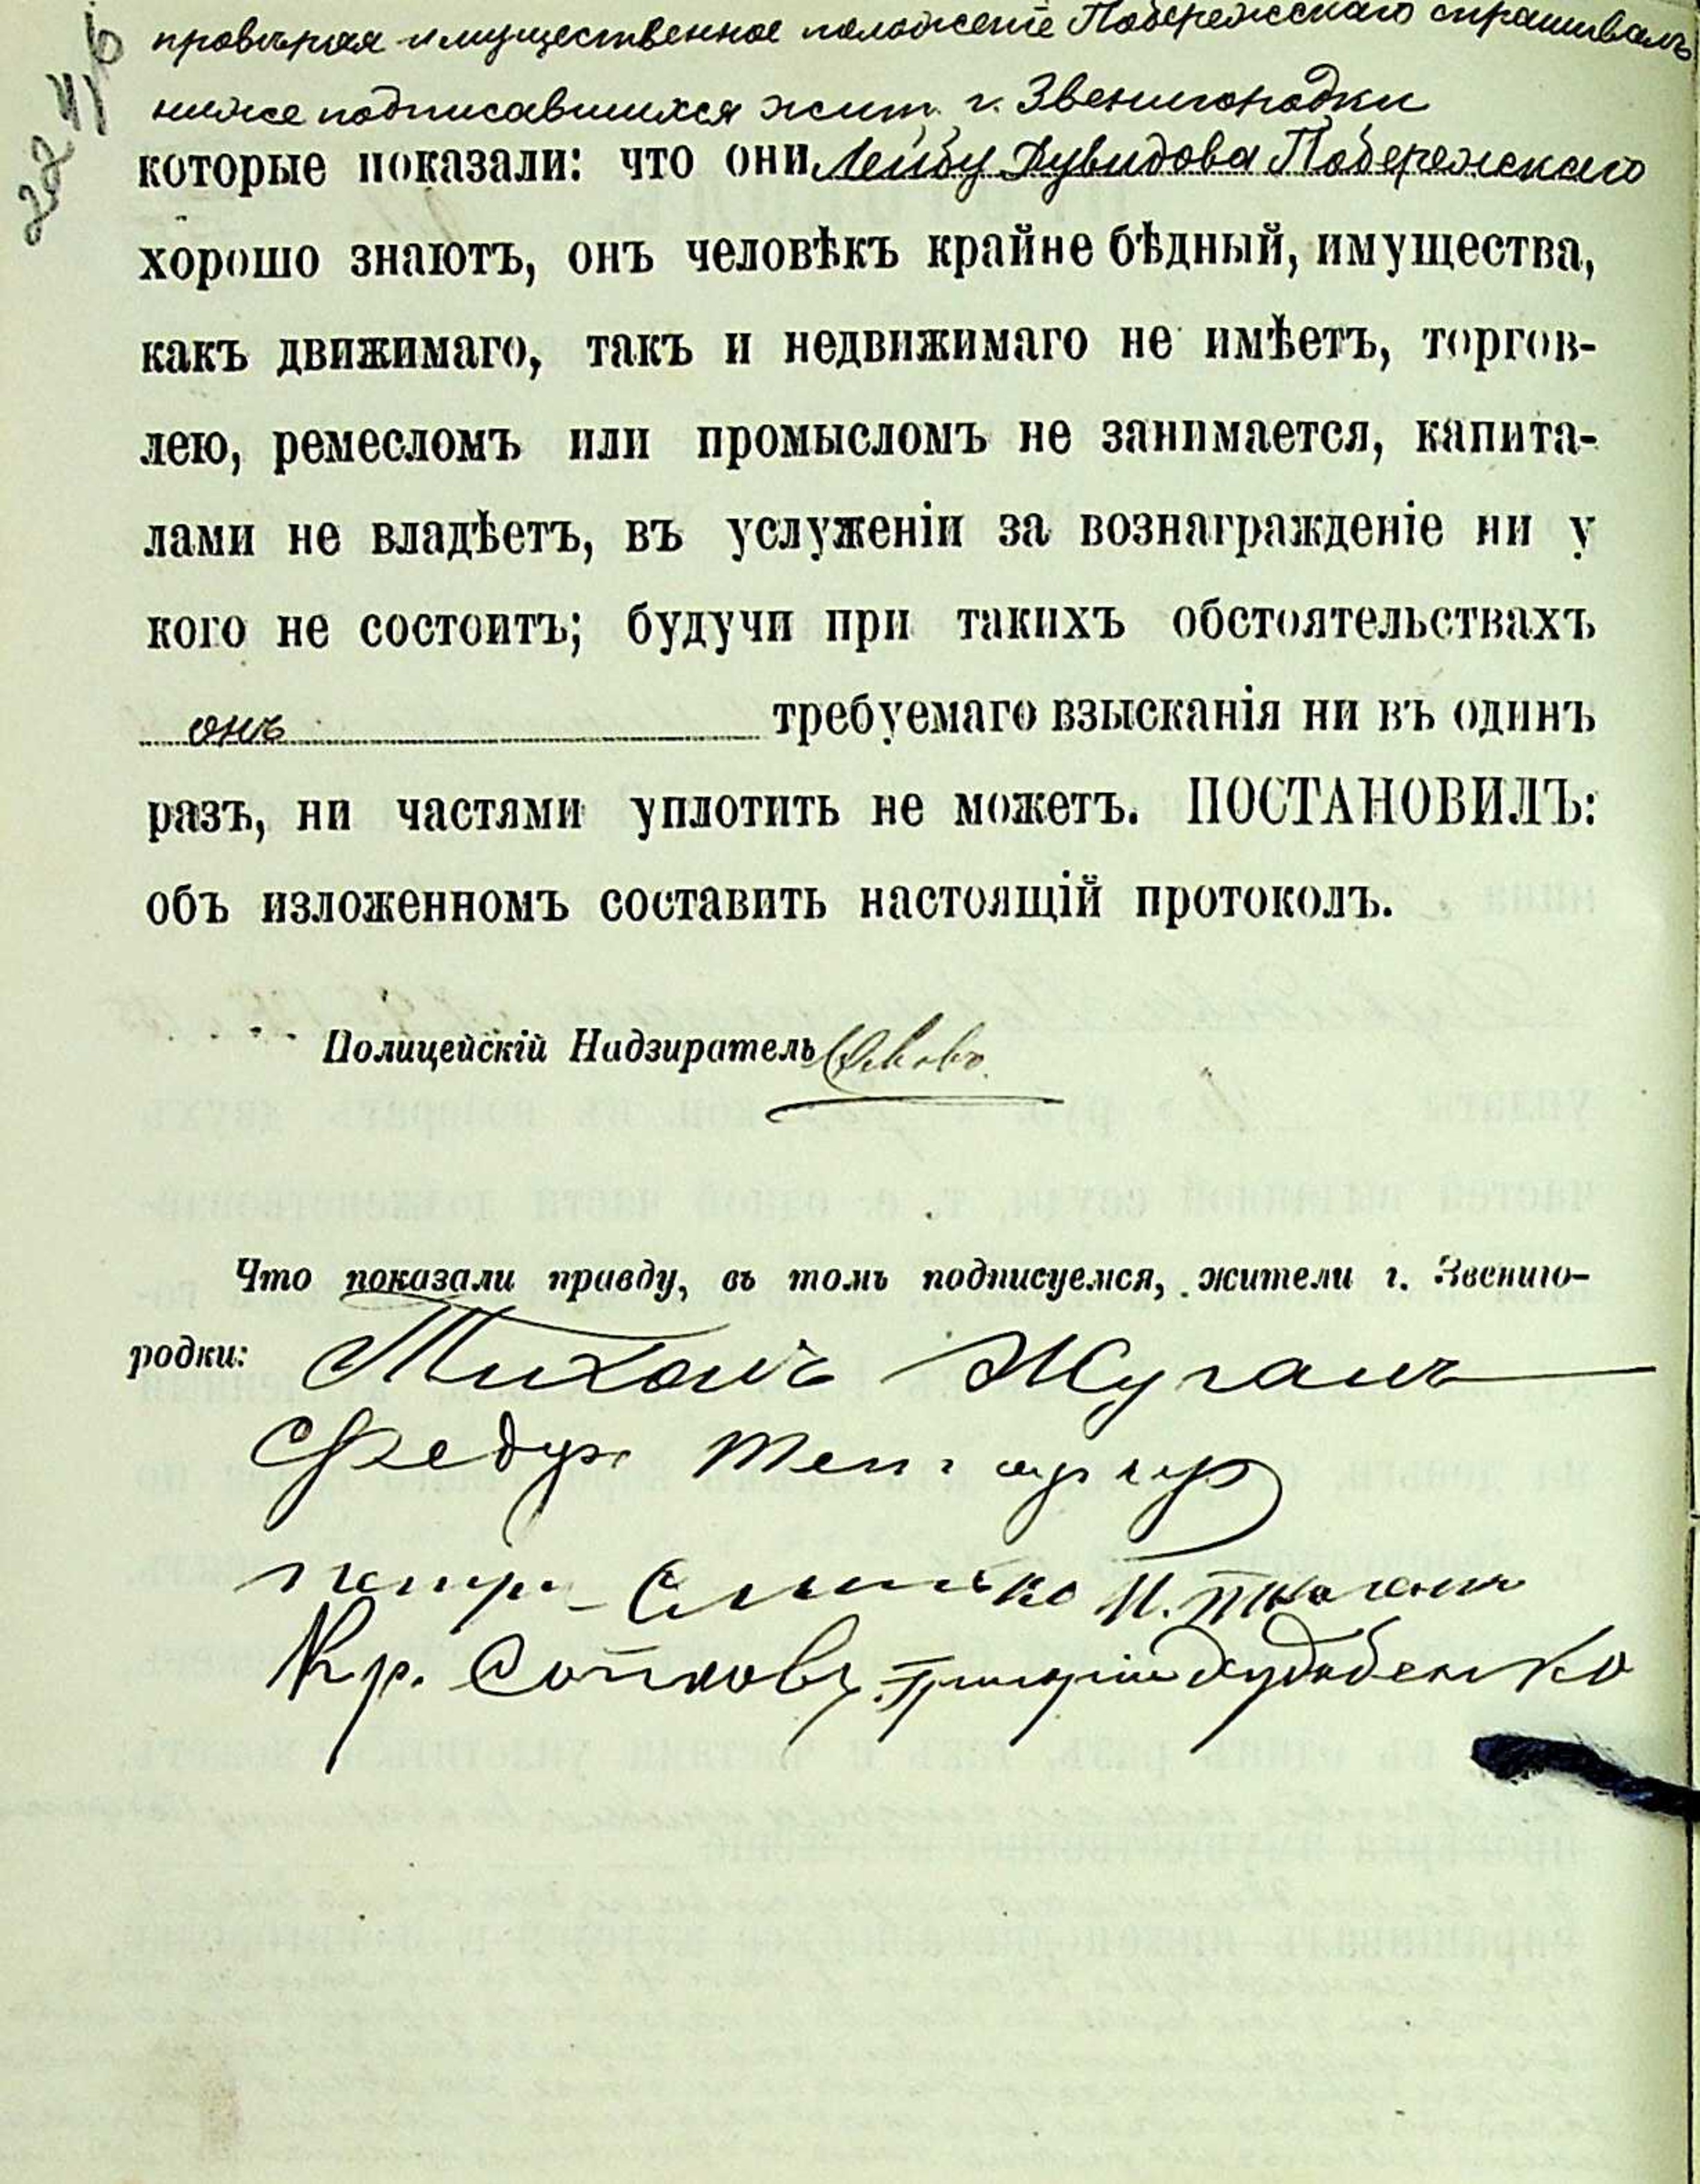 провѣряя имущественное положеніе Побережскаго спрашивалъ
ниже подписавшихся жит. г. Звенигородки
которые показали: что они Лейбу Дувидова Побережскаго
хорошо знаютъ, онъ человѣкъ крайне бѣдный, имущества,
какъ движимаго, такъ и недвижимаго не имѣетъ, торгов-
лею, ремесломъ или промысломъ не занимается, капита-
лами не владѣетъ, въ услуженіи за вознагражденіе ни у
кого не состоитъ; будучи при такихъ обстоятельствахъ
онъ требуемаго взысканія ни въ одинъ
разъ, ни частями уплотить не можетъ. ПОСТАНОВИЛЪ:
объ изложенномъ составить настоящій протоколъ.
Полицейскій Надзиратель
Что показали правду, въ томъ подписуемся, жители г. Звениго-
родки: Тихонъ Жуганъ
Федур
Кр. Григорій